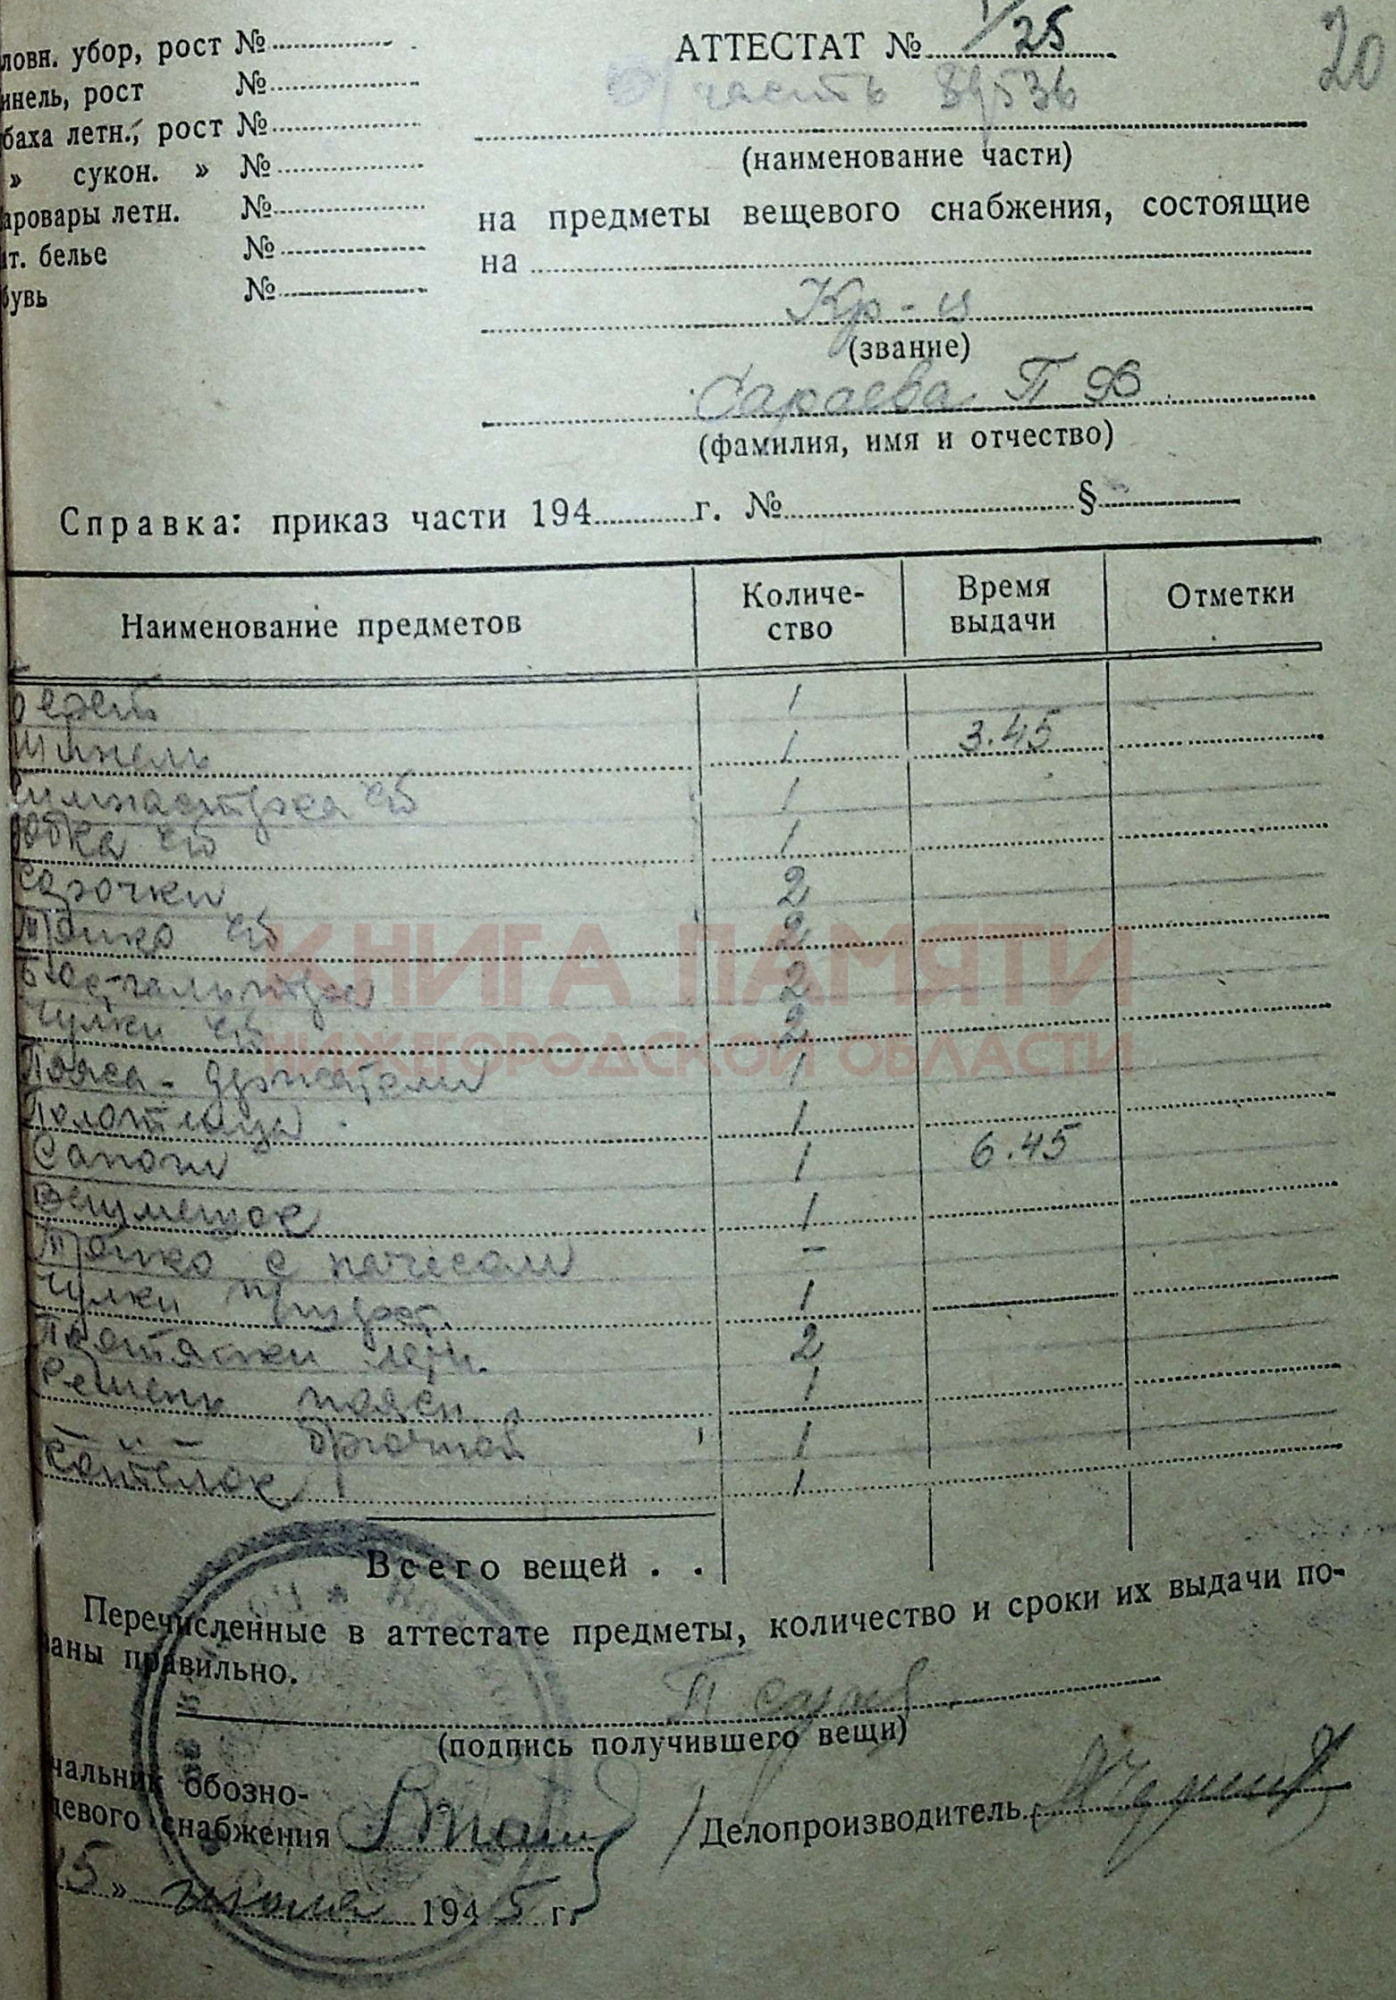 ловн. убор, рост №
инель, рост №
баха летн., рост №
» сукон. » №
аровары летн. №
ит. белье №
бувь №
АТТЕСТАТ № 1/25
20
часть 89536
(наименование части)
на предметы вещевого снабжения, состоящие
на
Кр-ц
(звание)
Сараева П Ф
(фамилия, имя и отчество)
Справка: приказ части 194 г. № §
Наименование предметов Количе-ство Время выдачи Отметки
Берет 1
Шинель 1 3.45
Гимнастерка х/б 1
Юбка х/б 1
Сорочки 2
Трико х/б 2
Бюстгальтера 2
Чулки х/б 2
Пояса-держатели 1
Полотенца 1
Сапоги 1 6.45
Вещмешок 1
Трико с начесом –
Чулки 1
летн. 2
Ремень поясн. 1
брючной 1
Котелок 1
КНИГА ПАМЯТИ
НИЖЕГОРОДСКОЙ ОБЛАСТИ
Всего вещей . .
Перечисленные в аттестате предметы, количество и сроки их выдачи по-
аны правильно.
(подпись получившего вещи)
чальник обозно-
щевого снабжения
Делопроизводитель
15 » июля 1945 г.